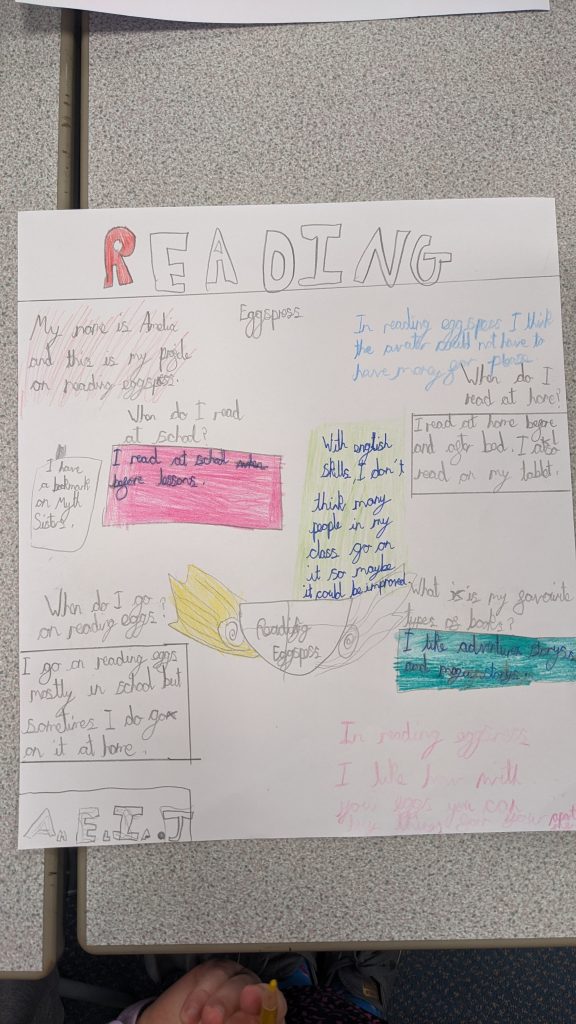 READING
My name is Amelia
and this is my
on reading eggspress.
Eggspress
In reading eggspress I think
the avatar should not have to
have money for
When do I
read at home?
I read at home before
and after bed. I also
read on my tablet.
When do I read
at school?
I read at school
before lessons.
I have
a bookmark
on Myth
Sisters.
With english
skills, I don't
think many
people in my
class go on
it so maybe
it could be improved
When do I go
on reading eggs?
I go on reading eggs
mostly in school but
sometimes I do go
on it at home.
Reading
Eggspess
What is is my favourite
types of books?
I like adventure storys
and storys.
In reading eggspress
I like how with
your eggs you can
buy thing for your
A.E.I.J